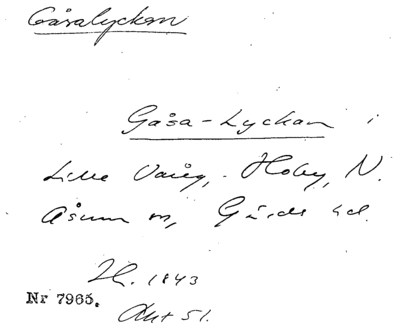 Gåsalyckan
Gåsa-Lyckan i
Lille Vång, Hoby, N.
Åsum sn, Gärds hd.
H. 1843
Nr 7965.
Akt 51.